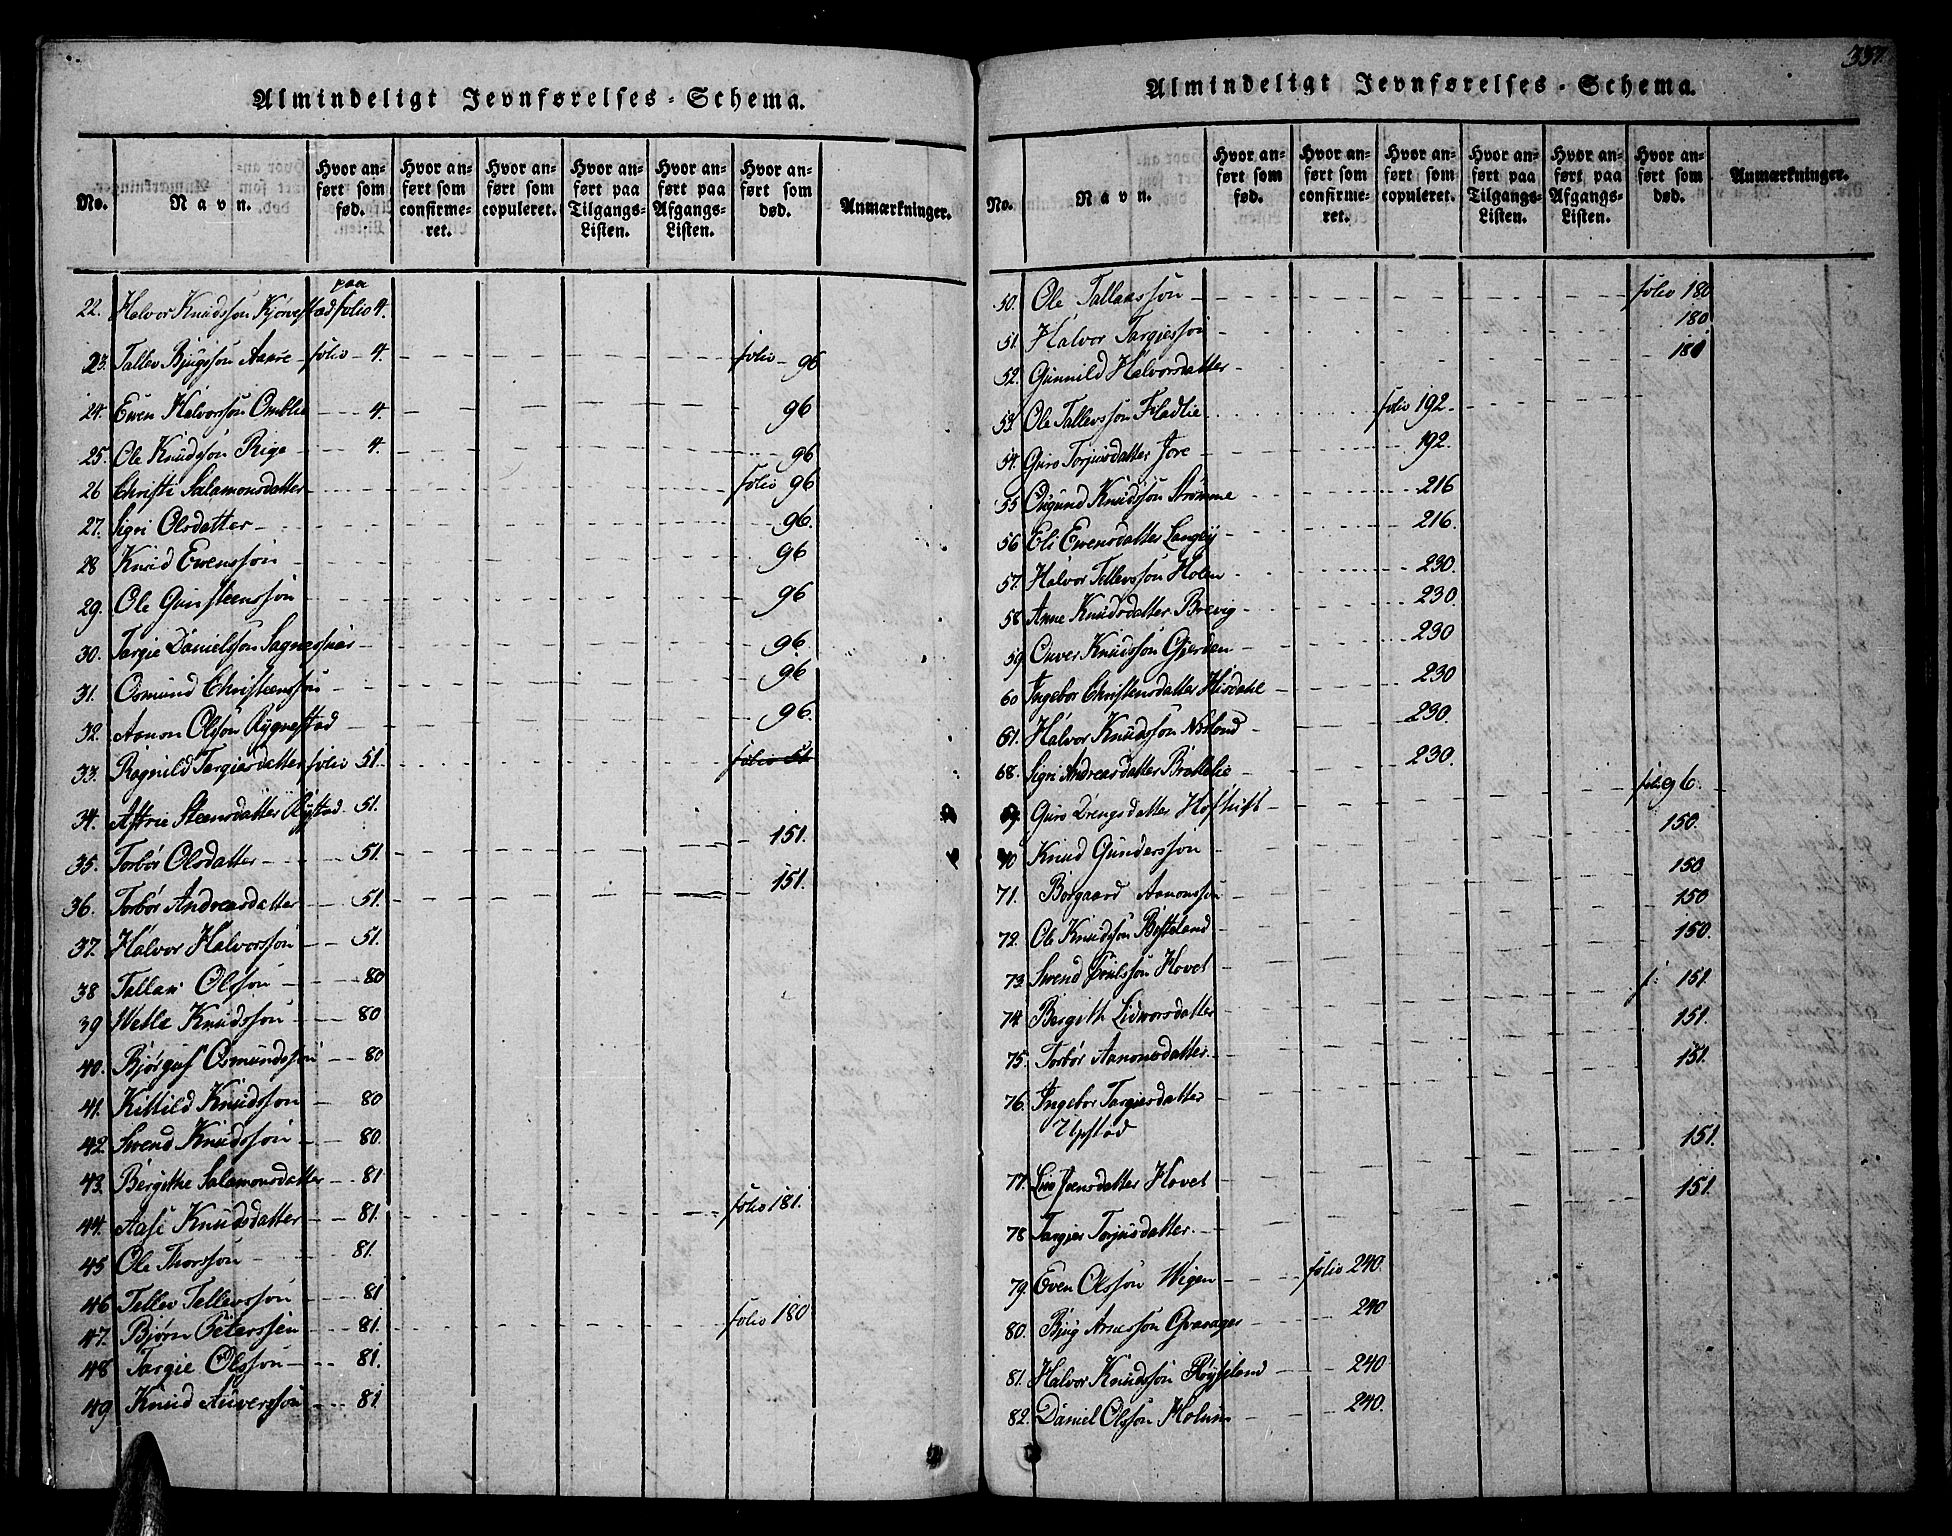 Almindeligt Jevnførelses-Schema.
No. Navn. Hvor anført som fød. Hvor anført som confirmeret. Hvor anført som copuleret. Hvor anført paa Tilgangs-Listen. Hvor anført paa Afgangs-Listen. Hvor anført som død. Anmærkninger.
paa
22. Halvor Knudsson folio 4.
23. Tallev Bjugsson Aare folio 4. folio 96
24. Even Halvorsson 4. 96
25. Ole Knudsson Rige 4. 96
26 Christi Salamonsdatter folio 96
27. Sigri Olsdatter 96.
28 Knud Evensson 96
29. Ole Gunsteensson 96
30. Targie Danielsson 96
31. Osmund Christensson 96
32. Aanon Olsson Rygnestad 96.
33. Ragnild Targiesdatter folio 51. folio 51
34. Steensdatter Rystad 51.
35. Torbor Olsdatter 51. 151.
36. Torbor Andreasdatter 51. 151.
37. Halvor Halvorsson 51.
38 Tallak Olsson 80
39 Knudsson 80
40. Osmundsson 80
41. Kittild Knudsson 80
42. Svend Knudsson 80.
43. Bergithe Salamonsdatter 81
44. Aase Knudsdatter 81. folio 181.
45 Ole Thorsson 81.
46 Tellev Tellevsson 81
47. Bjørn Peterssen 81. folio 180
48 Targie Olsson 81.
49 Knud Auversson 81
337
Almindeligt Jevnførelses-Schema.
No. Navn. Hvor anført som fød. Hvor anført som confirmeret. Hvor anført som copuleret. Hvor anført paa Tilgangs-Listen. Hvor anført paa Afgangs-Listen. Hvor anført som død. Anmærkninger.
50. Ole Tallaksson folio 180
51. Halvor Targiesson 180
52. Gunnild Halvorsdatter 180
53. Ole Tallevsson Fladlie folio 192.
54. Guro Torjusdatter Jore 192.
55 Osgund Knudsson Strømme 216
56 Eli Evensdatter Langey 216.
57. Halvor Tellevsson Holen 230.
58. Anne Knudsdatter Brevig 230.
59 Onver Knudsson Gjerden 230
60 Ingebor Christensdatter 230
61. Halvor Knudsson 230.
68. Sigri Andreasdatter Brottelie 230.
69. Guro Drengsdatter Hoftuft folio 96.
70 Knud Gundersson 150.
71. Borgaard Aanonsson 150
72. Ole Knudsson Besteland 150
73. Svend Hovet 150.
74. Bergith Lidvorsdatter f: 151.
75. Torbor Aanonsdatter 151.
76. Ingebor Targiesdatter 151.
Upstad
77. Jeensdatter Hovet 151.
78 Targier Torjusdatter 151.
79. Even Olsson Wigen folio 240.
80. Bjug Arnesson 240
81. Halvor Knudsson Røyseland 240
82. Daniel Olsson Holum 240.